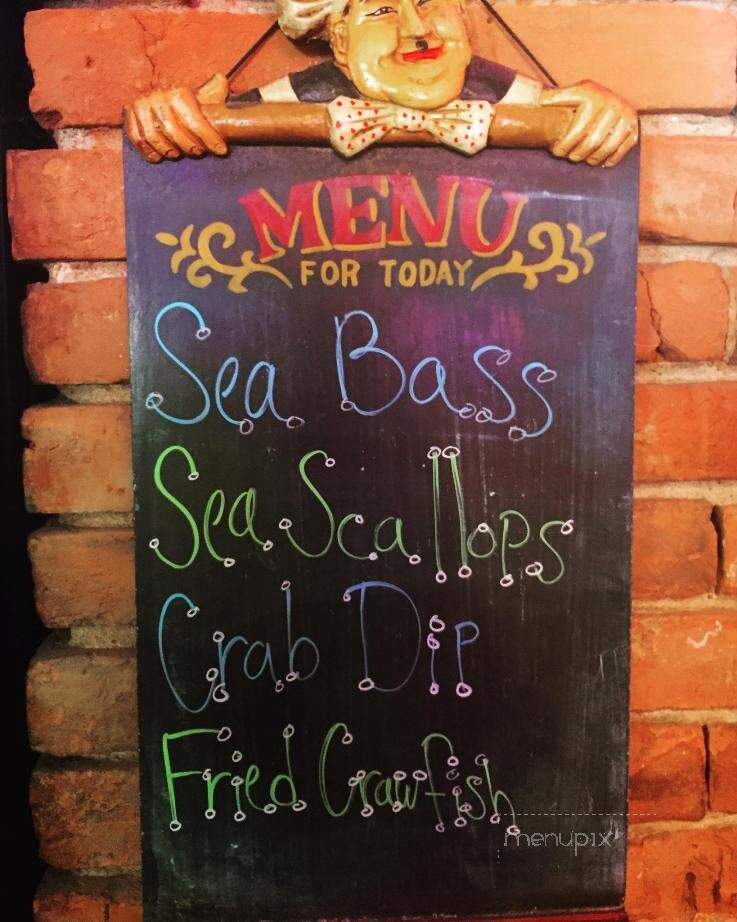 MENU
FOR TODAY
Sea Bass
Sea Scallops
Crab Dip
Fried Crawfish
menupix